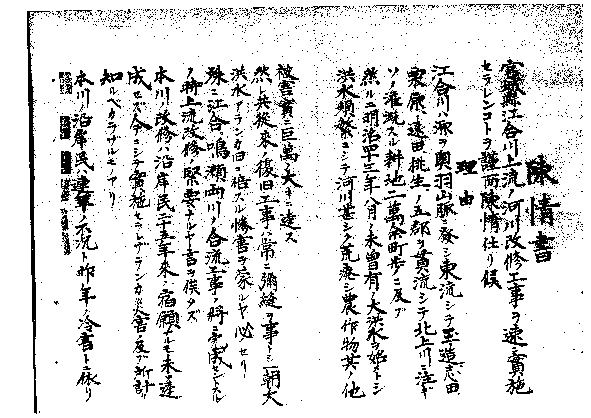 陳情書
宮城縣江合川上流ノ河川改修工事ヲ速ニ實施
セラレンコトヲ謹而陳情仕リ候
理由
江合川ハ源ヲ奥羽山脈ニ發シ東流シテ玉造志田
栗原遠田桃生ノ五郡ヲ貫流シテ北上川ニ注ギ
ソノ灌漑スル耕地二萬余町歩ニ及ブ
然ルニ明治四十三年八月ノ未曾有ノ大洪水ヲ始メトシ
洪水頻繁ニシテ河川甚シク荒廃シ農作物其ノ他
被害實ニ巨萬ノ大キニ達ス
然レ共従来ノ復旧工事ハ常ニ彌縫ヲ事トシ一朝大
洪水アランカ旧ニ倍スル惨害ヲ蒙ルヤ必セリ
殊ニ江合鳴瀬両川ノ合流工事ノ将ニ完成セントスル
ノ時上流改修ノ緊要ナルヤ言ヲ俟タズ
本川ノ改修ハ沿岸民二十五年来ノ宿願ナルモ未達
成セズ今ニシテ實施セラレザランカ災害ノ及ブ所計リ
知ルベカラザルモノアリ
本川ノ沿岸民ハ連年ノ水災ト昨年ノ冷害トニ依リ